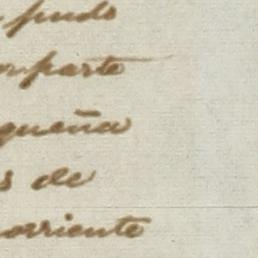 pudo
parte
queña
s de
orriente